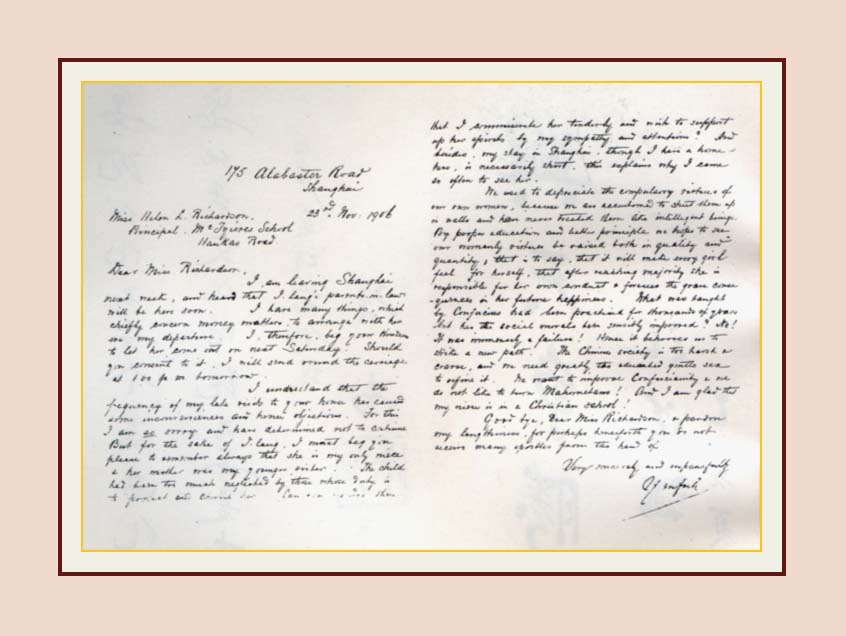 175 Alabaster Road
Shanghai
23rd Nov. 1906
Miss Helen L. Richardson,
Principal, McTyiere School
Hankow Road.
Dear Miss Richardson,
I am leaving Shanghai
next week, and heard that I. lang's parents-in-law
will be here soon. I have many things, which
chiefly concern money matters, to arrange with her
ere my departure. I, therefore, beg your kindness
to let her come out on next Saturday. Should
you consent to it, I will send round the carriage
at 1.00 p.m. tomorrow.
I understand that the
frequency of my late visits to your house has caused
some inconveniences and hence objections. For this
I am so sorry and have determined not to continue
But for the sake of I. lang, I must beg you
please to remember always that she is my only niece
& her mother was my younger sister. The child
had been too much neglected by those whose duty is
to protect and
that I commiserate her tenderly and wish to support
up her spirits by my sympathy and attention? And
besides, my stay in Shanghai, though I have a home
here, is necessarily short, this explains why I came
so often to see her.
We used to depreciate the compulsory virtues of
our own women, because we are accustomed to shut them up
in walls and have never treated them like intelligent beings.
By proper education and better principle we hope to see
our womanly virtues be raised both in quality and
quantity; that is to say, that it will make every girl
feel for herself, that after reaching majority she is
responsible for her own conduct & foresees the grave conse-
quences in her future happiness. What was taught
by Confucius had been preached for thousands of years
but has the social morals been sensibly improved? No!
It was immensely a failure! Hence it behooves us to
strike a new path. The Chinese society is too harsh &
coarse, and we need greatly the educated gentle sex
to refine it. We want to improve Confucianity & we
do not like to turn Mahometans! And I am glad that
my niece is in a Christian school!
Good bye, Dear Miss Richardson, & pardon
my lengthiness, for perhaps henceforth you do not
receive many epistles from the hand of
Very sincerely and respectfully